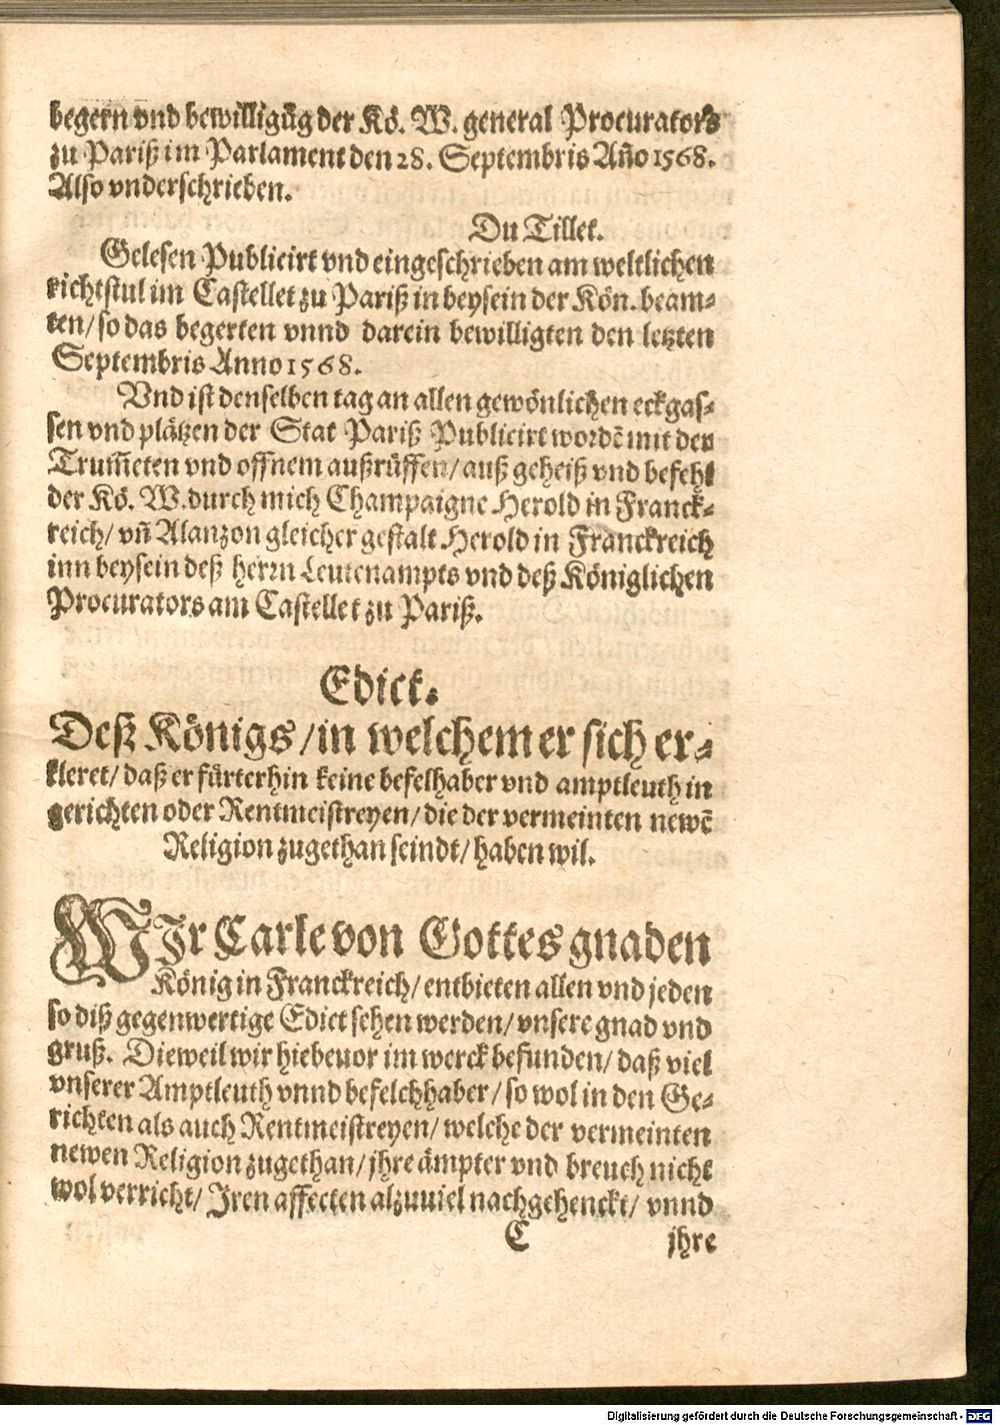 begern vnd bewilligūg der Kö. W. general Procurators
zu Pariß im Parlament den 28. Septembris Año 1568.
Also vnderschrieben.
Du Tillet.
Gelesen Publicirt vnd eingeschrieben am weltlichen
richtstul im Castellet zu Pariß in beysein der Kön. beam-
ten/ so das begerten vnnd darein bewilligten den letzten
Septembris Anno 1568.
Vnd ist denselben tag an allen gewönlichen eckgas-
sen vnd plätzen der Stat Pariß Publicirt wordē mit den
Trum̃eten vnd offnem außrüffen/ auß geheiß vnd befehl
der Kö. W. durch mich Champaigne Herold in Franck-
reich/ vñ Alanzon gleicher gestalt Herold in Franckreich
inn beysein deß herrn Leutenampts vnd deß Königlichen
Procurators am Castellet zu Pariß.
Edict.
Deß Königs/ in welchem er sich er-
kleret/ daß er fürterhin keine befelhaber vnd amptleuth in
gerichten oder Rentmeistreyen/ die der vermeinten newē
Religion zugethan seindt/ haben wil.
WIr Carle von Gottes gnaden
König in Franckreich/ entbieten allen vnd jeden
so diß gegenwertige Edict sehen werden/ vnsere gnad vnd
gruß. Dieweil wir hiebeuor im werck befunden/ daß viel
vnserer Amptleuth vnnd befelchhaber/ so wol in den Ge-
richten als auch Rentmeistreyen/ welche der vermeinten
newen Religion zugethan/ jhre ämpter vnd breuch nicht
wol verricht/ Iren affecten alzuuiel nachgehenckt/ vnnd
C jhre
Digitalisierung gefördert durch die Deutsche Forschungsgemeinschaft - DFG